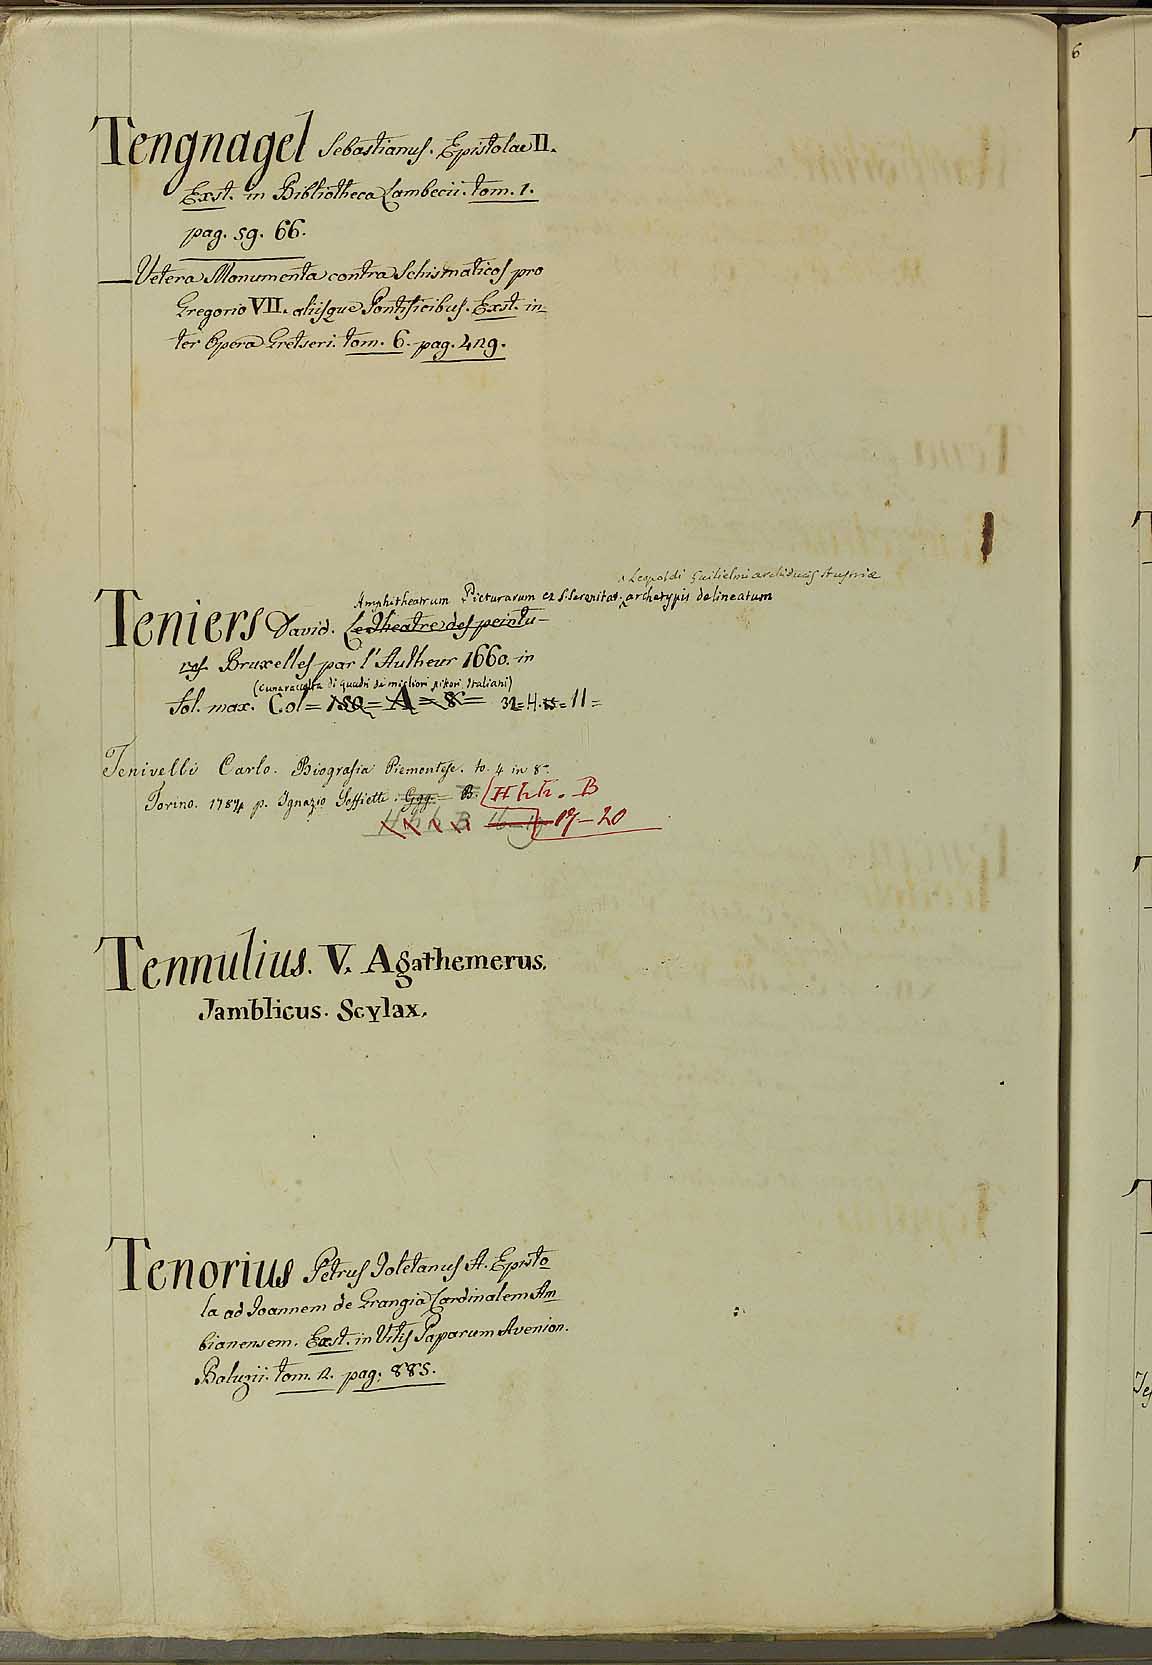 Tengnagel Sebastianus. Epistolae II.
Exst. in Bibliotheca Lambecii. tom. 1.
pag. 59. 66.
— Vetera Monumenta contra Schismaticos pro
Gregorio VII. aliisque Pontificibus. Exst. in
ter Opera Gretseri. tom. 6. pag. 429.
Leopoldi Guilielmi archiducis Austriæ
Amphitheatrum Picturarum ex S. Serenitas. archetypis delineatum
Teniers David. Le Theatre des peintu-
res Bruxelles par l'Autheur 1660. in
(cuna raccolta di quadri de migliori pitori Italiani)
fol. max. Col = 180 = A = 8 = = H. = 11 =
Tenivelli Carlo. Biografia Piemontese. to. 4 in 8°
Torino. 1784 p. Ignazio Soffietti. Ggg. = B. Hhh. B
Hhh B 16 17-20
Tennulius. V. Agathemerus.
Jamblicus. Scylax.
Tenorius Petrus Toletanus A. Episto
la ad Joannem de Grangia Cardinalem Am
bianensem. Exst. in Vitis Paparum Avenion.
Baluzii. tom. 2. pag. 885.
6